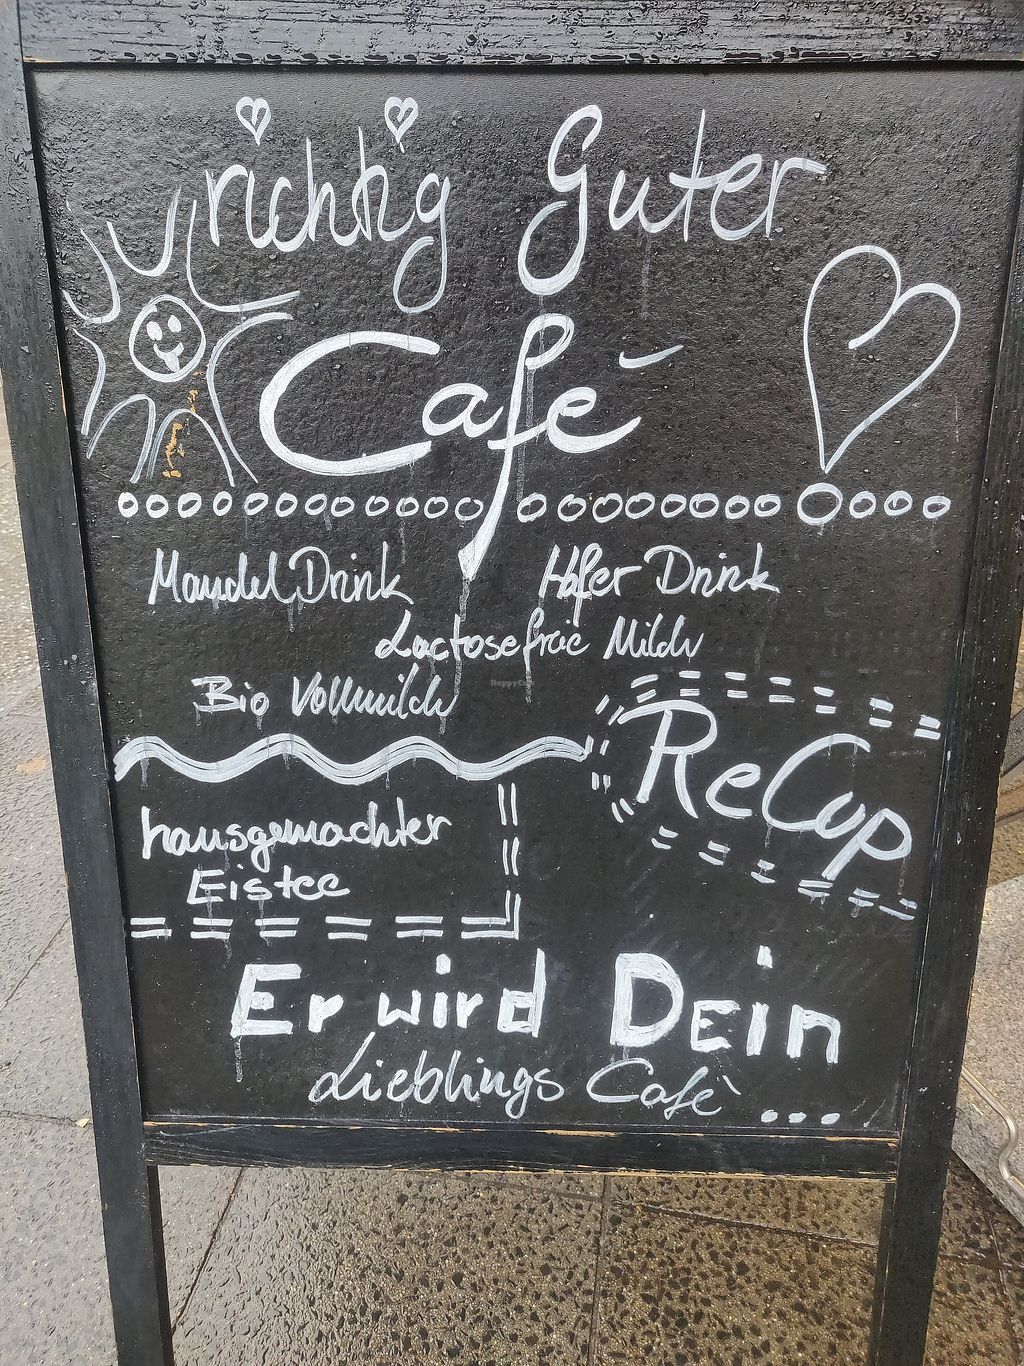 richtig Guter
Café
Mandel Drink
Hafer Drink
Lactosefreie Milch
Bio Vollmilch
HappyCow
ReCup
hausgemachter
Eistee
Er wird Dein
Lieblings Cafè ...